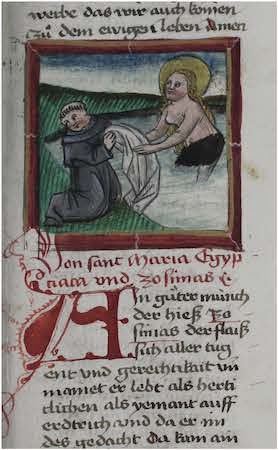 werbe das wir auch komen
zů dem ewigen leben Amen
Von sant Maria Egyp
ciaca vnd zosimas ⁊c
AIn gůter münch
der hieß Zo
simas der flaiß
sich aller tug
ent vnd gerechtikait vn
man er lebt als
lichen als yemant auff
erdtrich vnd da er im
des gedacht Da kam ain